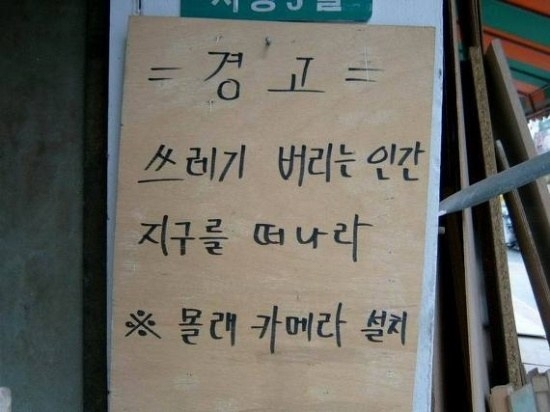 = 경 고 =
쓰레기 버리는 인간
지구를 떠나라
※ 몰래 카메라 설치